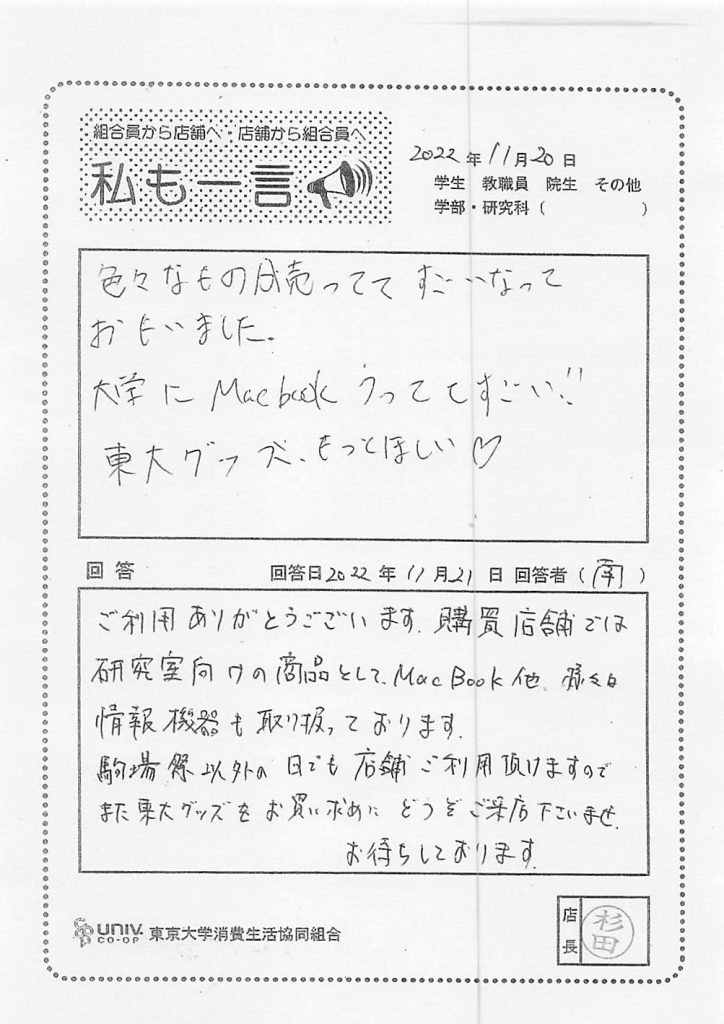 組合員から店舗へ・店舗から組合員へ
私も一言
2022年11月20日
学生 教職員 院生 その他
学部・研究科( )
色々なもの成売ってて すごいなって
おもいました。
大学に Macbook うっててすごい!!
東大グッズ、もっとほしい♡
回答 回答日2022年11月21日 回答者(南)
ご利用ありがとうございます。購買店舗では
研究室向けの商品として、MacBook他、様々な
情報機器も取り扱っております。
駒場祭以外の日でも店舗ご利用頂けますので
また東大グッズをお買い求めに どうぞご来店下さいませ。
お待ちしております。
univ. CO-OP 東京大学消費生活協同組合
店長 杉田